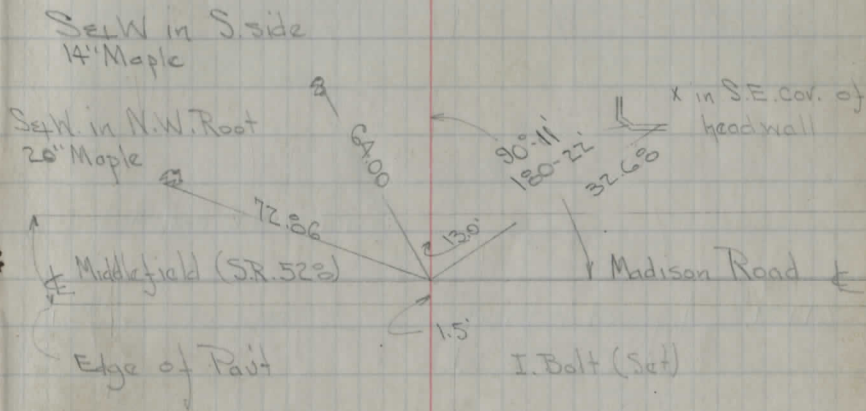 S&W in S. side
14" Maple
S&W. in N.W. Root
20" Maple
x in S.E. cor. of
headwall
64.00
90°-11'
180-22'
32.68
72.86
13.0'
℄ Middlefield (S.R. 528)
Madison Road ℄
1.5'
Edge of Pav't
I. Bolt (Set)